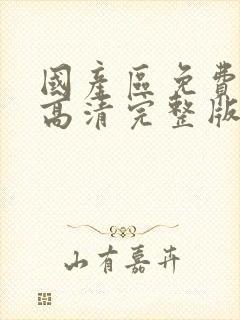 國產區免費
高清完整版
山有嘉卉